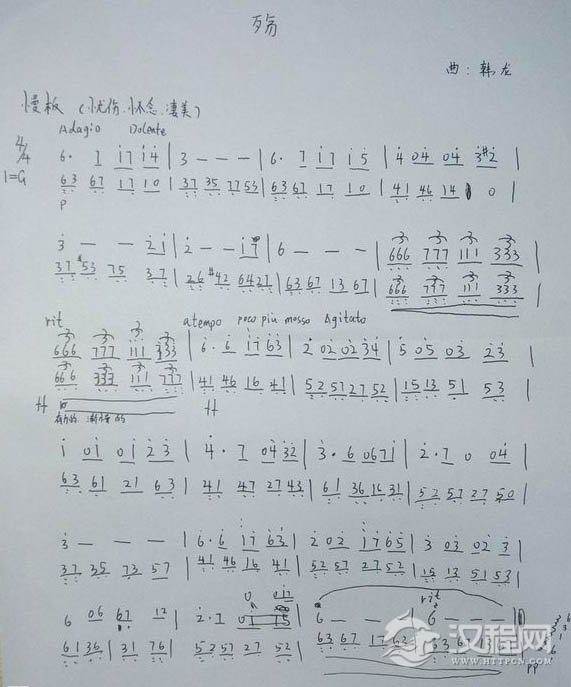 殇
曲：韩龙
慢板（忧伤.怀念.凄美）
Adagio Dolente
4/4 6· 7 i7 i4 | 3 — — — | 6· 7 i7 i5 | 4 04 04 3#2 |
1=G 63 67 17 10 | 37 35 77 53 | 63 67 17 10 | 41 46 14 0 |
P
3 — — 2i | 2 — — i7 | 6 — — — | 666 777 111 333 |
37 #53 75 37 | 26 #42 6427 | 63 67 13 67 | 666 777 111 333 |
rit atempo poco più mosso Agitato
666 777 iii 333 | 6· 6 i7 63 | 2 02 02 34 | 5 05 03 23 |
666 333 111 777 | 41 46 16 41 | 52 57 27 52 | 15 13 51 53 |
i 0i 0i 23 | 4· 7 04 32 | 3· 6 067i | 2· 7 0 04 |
63 61 21 63 | 41 47 27 43 | 61 36 16 31 | 52 57 27 50 |
3 — — — | 6· 6 i7 63 | 2 02 i7 65 | 3 03 02 3 |
37 35 73 57 | 41 46 16 41 | 52 57 27 52 | 15 13 51 53 |
rit
6 06 67 12 | 2· 1 0 | 6 — — — | 6 — — |
61 36 | 31 76 | 52 57 27 52 | 63 67 17 62 | 63
PP
汉程网
WWW.HTTPCN.COM